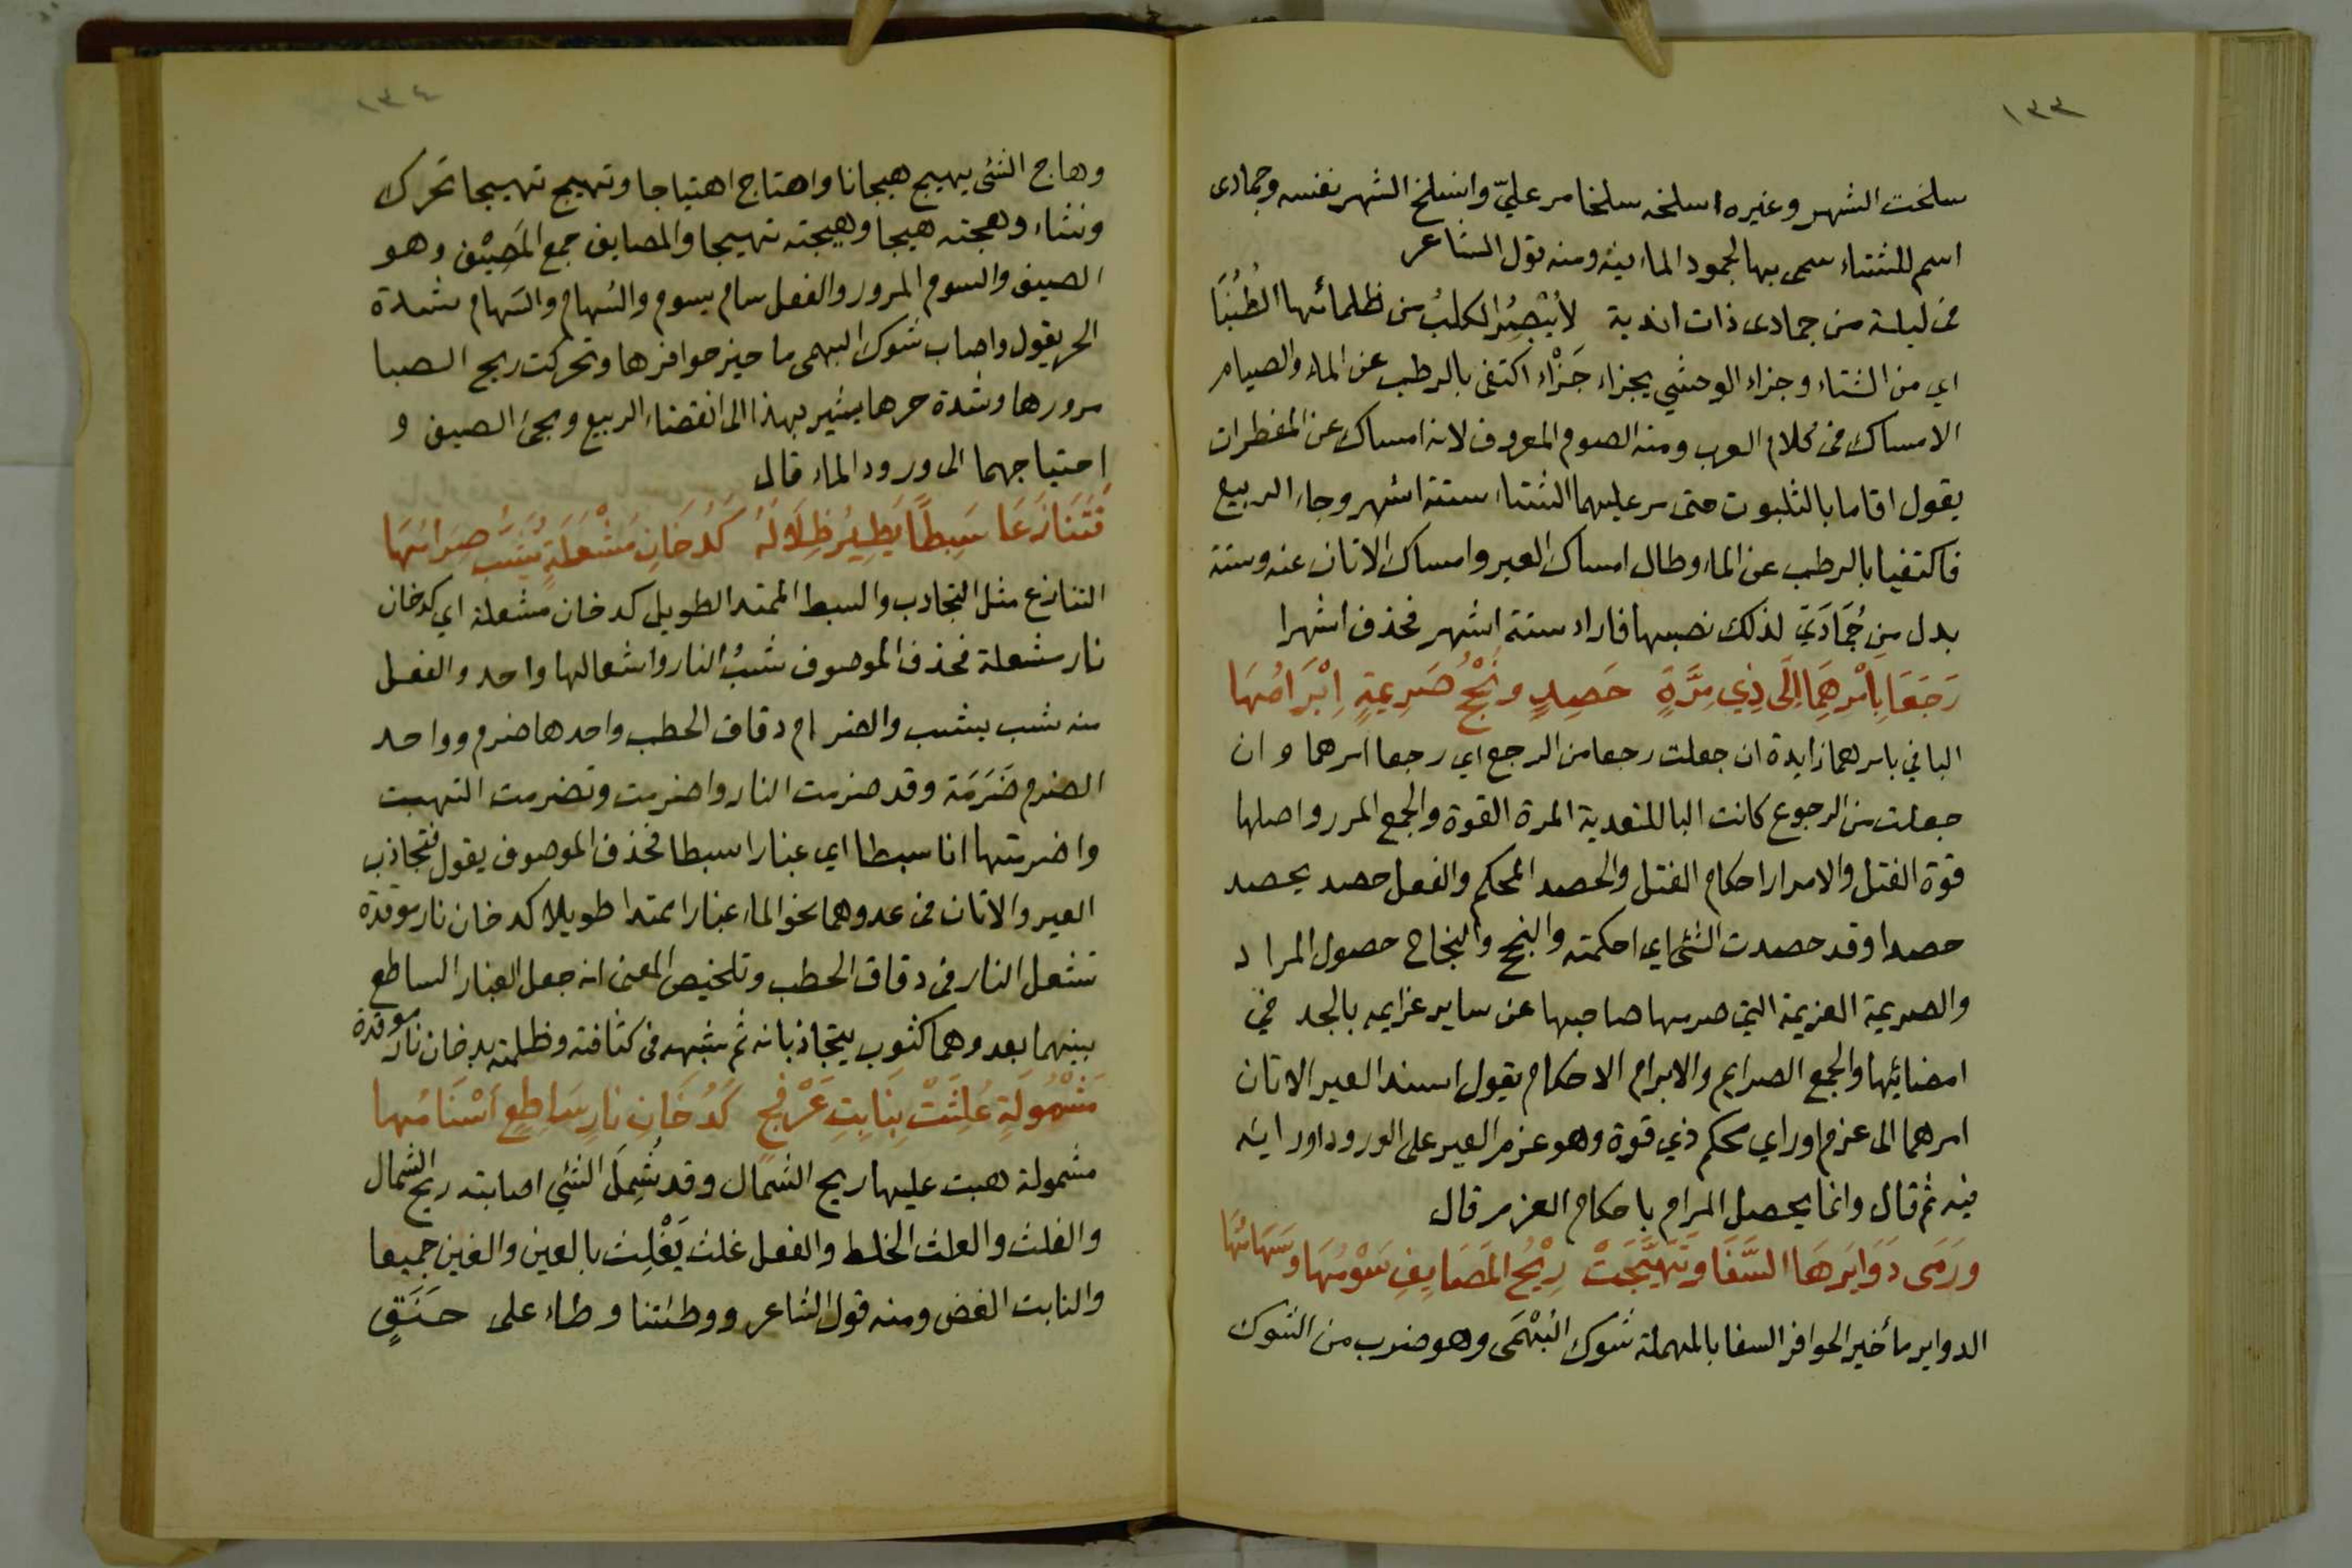 ١٣٣
سلخت الشهر وغيره اسلخه سلخا مر عليّ وانسلخ الشهر نفسه وجمادى
اسم للشتاء سمى بها لجمود الماء فيه ومنه قول الشاعر
فى ليلة من جمادى ذات اندية لاُيُبْصِرُ الكلبُ من ظلمائها الطُنُبَا
اي من الشتاء وجزاء الوحشي يجزاء جَزْاء اكتفى بالرطب عن الماء والصيام
الامساك فى كلام العرب ومنه الصوم المعروف لانه امساك عن المفطرات
يقول اقاما بالثلبوت حتى مر عليهما الشتاء ستة اشهر وجاء الربيع
فاكتفيا بالرطب عن الماء وطال امساك العير وامساك الاتان عنه وستة
بدل من جُمَادَيَ لذلك نصبها فاراد ستة اشهر فحذف اشهرا
رَجَعَا بِاَمْرِهِمَا اِلَى ذِي مِرَّةٍ حَصِدٍ ونُجْحُ صَرِيمَةٍ اِبْرَامُهَا
البا في بامرهما زايدة ان جعلت رجعا من الرجع اي رجعا امرهما وان
جعلت من الرجوع كانت البا للتعدية المرة القوة والجمع المرر واصلها
قوة الفتل والامرار احكام الفتل والحصد المحكم والفعل حصد يحصد
حصدا وقد حصدت الشئ اي احكمته والنجح والنجاح حصول المراد
والصريمة العزيمة التي صرمها صاحبها عن ساير عزايمه بالجد في
امضائيها والجمع الصرايم والابرام الاحكام يقول اسند العير الاتان
امرهما الى عزم اوراي محكم ذي قوة وهو عزم العير على الورود اورايه
فيه ثم قال وانما يحصل المرام باحكام العزم قال
ورَمَى دَوَابِرَهَا السَّفَا وَتَهَيَّجَتْ رِيْحُ المَصَايِفِ سَوْمُهَا وسَهَامُهَا
الدوابر مأخير الحوافر السفا بالمهملة شوك البُهْمَى وهو ضرب من الشوك
١٣٤
وهاج الشئ يهيج هيجانا واهتاج اهتياجا وتهيج تهيجا تحرك
ونشاء وهجته هيجا وهيجته تهييجا والمصايف جمع المَصِيْف وهو
الصيف والسوم المرور والفعل سام يسوم والسُهام والسَهام شدة
الحر يقول واصاب شوك البهمى ماخير حوافرها وتحركت ريح الصبا
مرورها وشدة حرها يشير بهذا الى انقضاء الربيع ومجئ الصيف و
احتياجهما الى ورود الماء قال
فَتَنَازَعَا سَبِطًا يَطِيرُ ظِلَالُهُ كَدُخَانِ مُشْعَلَةٍ يُشَبُّ ضِرَامُهَا
التنازع مثل التجاذب والسبط الممتد الطويل كدخان مشعلة اي كدخان
نار مشعلة فحذف الموصوف شبُ النار واشعالها واحد والفعل
منه شب يشب والضرام دقاق الحطب واحدها ضرم وواحد
الضرم ضَرَمَة وقد ضرمت النار واضرمت وتضرمت التهبت
واضرمتها انا سبطا اي غبارا سبطا فحذف الموصوف يقول فتجاذب
العير والاتان فى عدوهما نحو الماء غبارا ممتدا طويلا كدخان نار موقدة
تشعل النار فى دقاق الحطب وتلخيص المعنى انه جعل الغبار الساطع
بينهما بعدوهما كثوب يتجاذبانه ثم شبهه فى كثافته وظلمته بدخان نار موقدة
مَشْمُولَةٍ غُلِثَتْ بِنَابِتِ عَرْفَجٍ كَدُخَانِ نَارٍ سَاطِعٍ اَسْنَامُهَا
مشمولة هبت عليها ريح الشمال وقد شُمِلَ الشئي اصابته ريح الشمال
والغلث والعلث الخلط والفعل غلث يَغْلِث بالعين والغين جميعا
والنابت الغض ومنه قول الشاعر ووطئتنا وطاء على حَنَقٍ